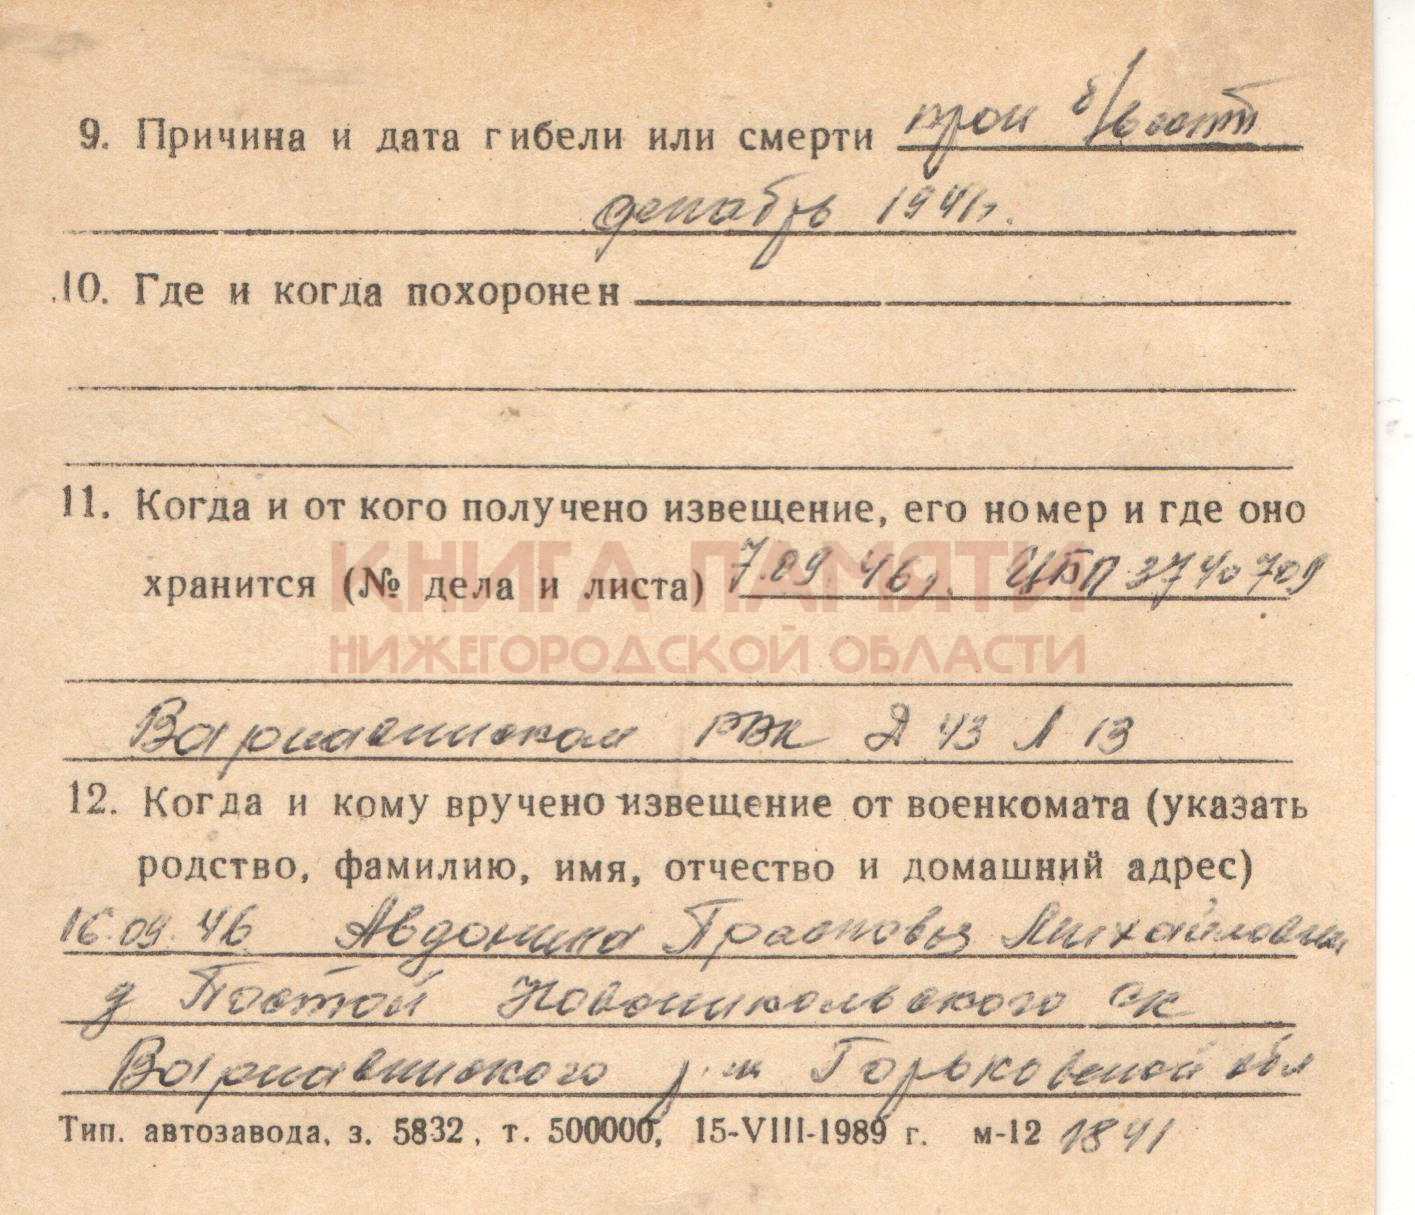 9. Причина и дата гибели или смерти проп б/вести
декабрь 1941г.
10. Где и когда похоронен
11. Когда и от кого получено извещение, его номер и где оно
хранится (№ дела и листа) 7.09.46г. ЦБП 3740709
КНИГА ПАМЯТИ
НИЖЕГОРОДСКОЙ ОБЛАСТИ
Варнавинском РВК Д 43 Л 13
12. Когда и кому вручено извещение от военкомата (указать
родство, фамилию, имя, отчество и домашний адрес)
16.09.46 Авдонина Прасковья Михайловна
д Постой Новоникольского ск
Варнавинского р-н Горьковской обл
Тип. автозавода, з. 5832, т. 500000, 15-VIII-1989 г. м-12 1841